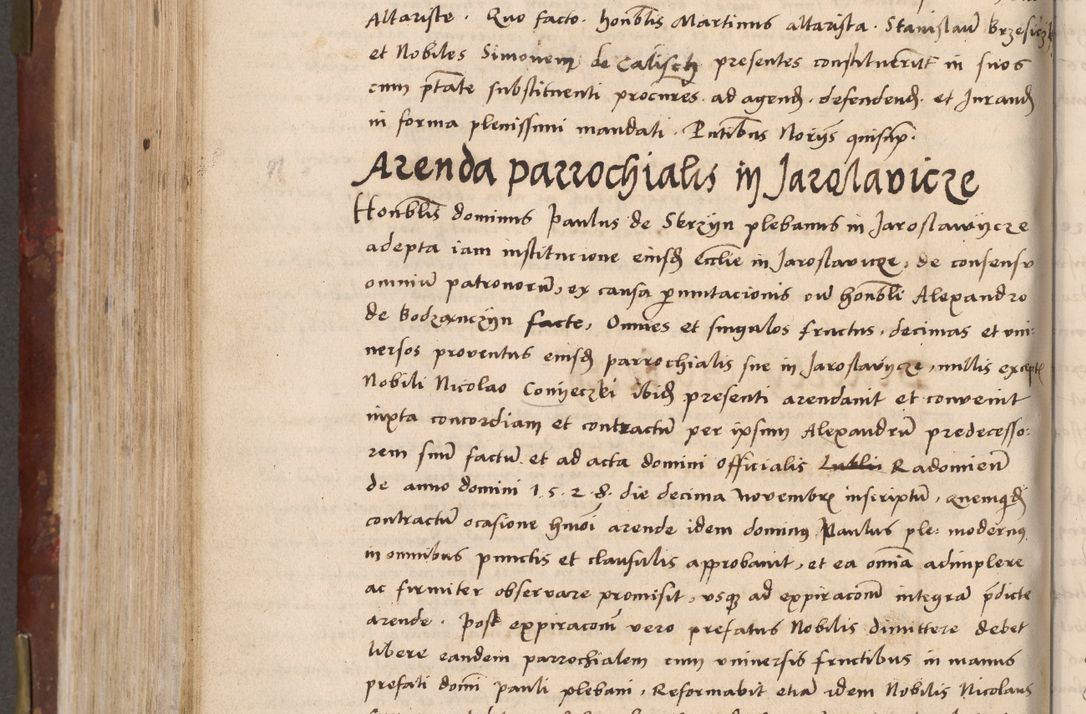 Altariste. Quo facto. honblis Martinus altarista. Stanislaū Brzesiczki
et Nobiles Simonem de Calisch presentes constituerūt in suos
cum ptate substituenti procures. ad agend. defendend. et Jurand
in forma plenissimi mandati. Pntibus Noriis quisup.
Arenda parrochialis in Jaroslavicze
Honblis dominus Paulus de Skrzyn plebanus in Jaroslawijcze
adepta iam institucione eiusd Ecclie in Jaroslavicze, de consensu
omniū patronorū, ex causa permutacionis cū honbli Alexandro
de Bodzanczyn facte, Omnes et singulos fructus, decimas et uni-
uersos prouentus eiusd parrochialis sue in Jaroslavijcze, nullis except
Nobili Nicolao Conijeczki ibid presenti arendauit et conuenit
iuxta concordiam et contractū per ipsum Alexandrū predecesso-
rem suū factū et ad acta domini officialis Radomien
de anno domini 1.5.2.8. die decima Novembr inscriptū, quemquid
contractū ocasione hmoi arende idem dominus Paulus ple: modernus
in omnibus punctis et clausulis approbauit, et ea omnia adimplere
ac firmiter observare promisit, usq ad expiracom integra pdicte
arende. Post expiracom vero prefatus Nobilis dimittere debet
libere eandem parrochialem cum universis fructibus in manus
prefati domi pauli plebani, Reformabit etia idem Nobilis Nicolaus